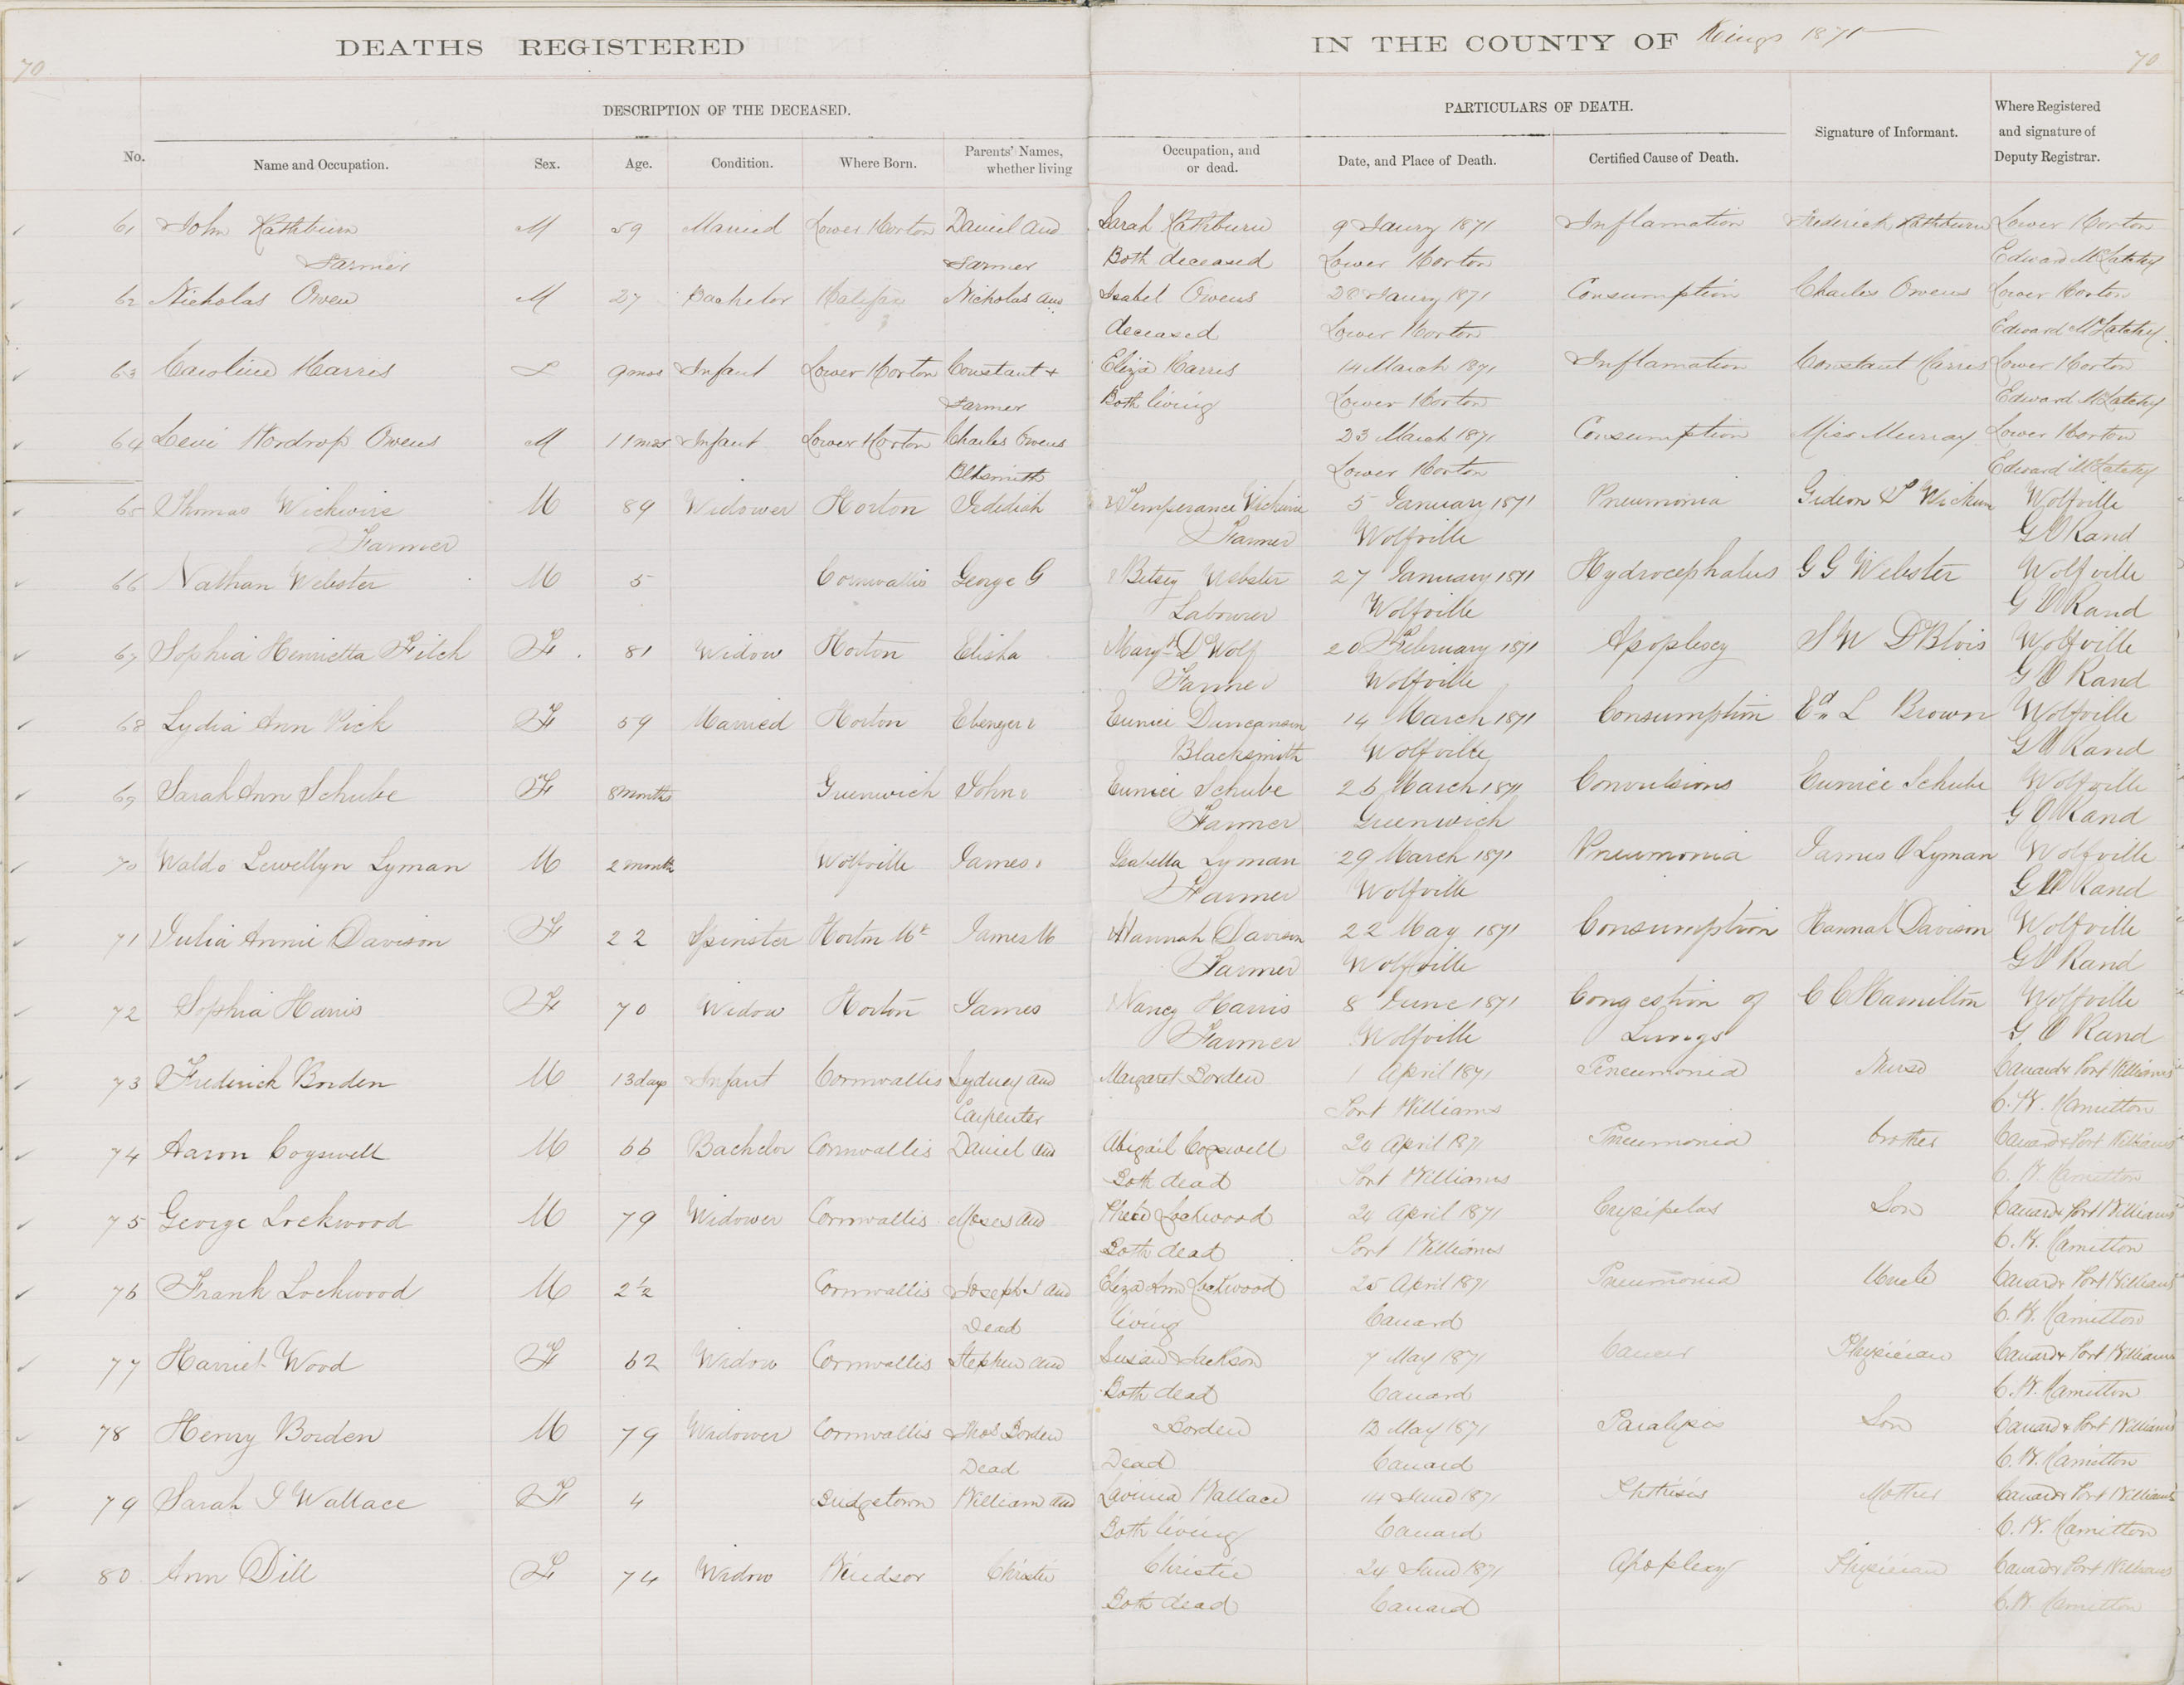 DEATHS REGISTERED IN THE COUNTY OF Kings 1871
70 70
DESCRIPTION OF THE DECEASED. PARTICULARS OF DEATH.
No. Name and Occupation. Sex. Age. Condition. Where Born. Parents' Names, whether living Occupation, and or dead. Date, and Place of Death. Certified Cause of Death. Signature of Informant. Where Registered and signature of Deputy Registrar.
61 John Rathburn M 59 Married Lower Horton Daniel and Sarah Rathburn 9 Jany 1871 Inflamation Frederick Rathburn Lower Horton
Farmer Farmer Both deceased Lower Horton Edward McLatchy
62 Nicholas Owen M 27 Bachelor Halifax Nicholas and Isabel Owens 28 Jany 1871 Consumption Charles Owens Lower Horton
deceased Lower Horton Edward McLatchy
63 Caroline Harris F 9 mos Infant Lower Horton Constant + Eliza Harris 14 March 1871 Inflamation Constant Harris Lower Horton
Farmer Both living Lower Horton Edward McLatchy
64 Levi Owens M 11 mos Infant Lower Horton Charles Owens 23 March 1871 Consumption Miss Murray Lower Horton
Blksmith Lower Horton Edward McLatchy
65 Thomas Wickwire M 89 Widower Horton Jedediah & Temperance Wickwire 5 January 1871 Pneumonia Gideon Wickwire Wolfville
Farmer Farmer Wolfville G V Rand
66 Nathan Webster M 5 Cornwallis George G & Betsey Webster 27 January 1871 Hydrocephalus G G Webster Wolfville
Labourer Wolfville G V Rand
67 Sophia Henrietta Fitch F. 81 Widow Horton Elisha Margt DWolf 20 February 1871 Apoplexy S W DBlois Wolfville
Farmer Wolfville G V Rand
68 Lydia Ann Pick F 59 Married Horton Ebenezer & Eunice Duncanson 14 March 1871 Consumption Ed L Brown Wolfville
Blacksmith Wolfville G V Rand
69 Sarah Ann Schube F 8 months Greenwich John & Eunice Schube 26 March 1871 Convulsions Eunice Schube Wolfville
Farmer Greenwich G V Rand
70 Waldo Lewellyn Lyman M 2 month Wolfville James & Isabella Lyman 29 March 1871 Pneumonia James O Lyman Wolfville
Farmer Wolfville G V Rand
71 Julia Annie Davison F 22 Spinster Horton Mt James M Hannah Davison 22 May 1871 Consumption Hannah Davison Wolfville
Farmer Wolfville G V Rand
72 Sophia Harris F 70 Widow Horton James Nancy Harris 8 June 1871 Congestion of C C Hamilton Wolfville
Farmer Wolfville Lungs G V Rand
73 Frederick Borden M 13 days Infant Cornwallis Sydney and Margaret Borden 1 April 1871 Pneumonia Nurse Canard & Port Williams
Carpenter Port Williams C. W. Hamilton
74 Aaron Cogswell M 66 Bachelor Cornwallis Daniel and Abigail Cogswell 20 April 1871 Pneumonia brother Canard & Port Williams
Both dead Port Williams C. W. Hamilton
75 George Lockwood M 79 Widower Cornwallis Moses and Lockwood 24 April 1871 Erysipelas Son Canard & Port Williams
Both dead Port Williams C. W. Hamilton
76 Frank Lockwood M 2½ Cornwallis Joseph and Eliza Ann Lockwood 25 April 1871 Pneumonia Uncle Canard & Port Williams
Dead living Canard C. W. Hamilton
77 Harriet Wood F 62 Widow Cornwallis Stephen and Susan Jackson 7 May 1871 Cancer Physician Canard & Port Williams
Both dead Canard C. W. Hamilton
78 Henry Borden M 79 Widower Cornwallis Thos Borden Borden 13 May 1871 Paralysis Son Canard & Port Williams
Dead Dead Canard C. W. Hamilton
79 Sarah J Wallace F 4 Bridgetown William and Lavinia Wallace 14 June 1871 Phthisis Mother Canard & Port Williams
Both living Canard C. W. Hamilton
80 Ann Dill F 74 Widow Windsor Christie Christie 24 June 1871 Apoplexy Physician Canard & Port Williams
Both dead Canard C. W. Hamilton